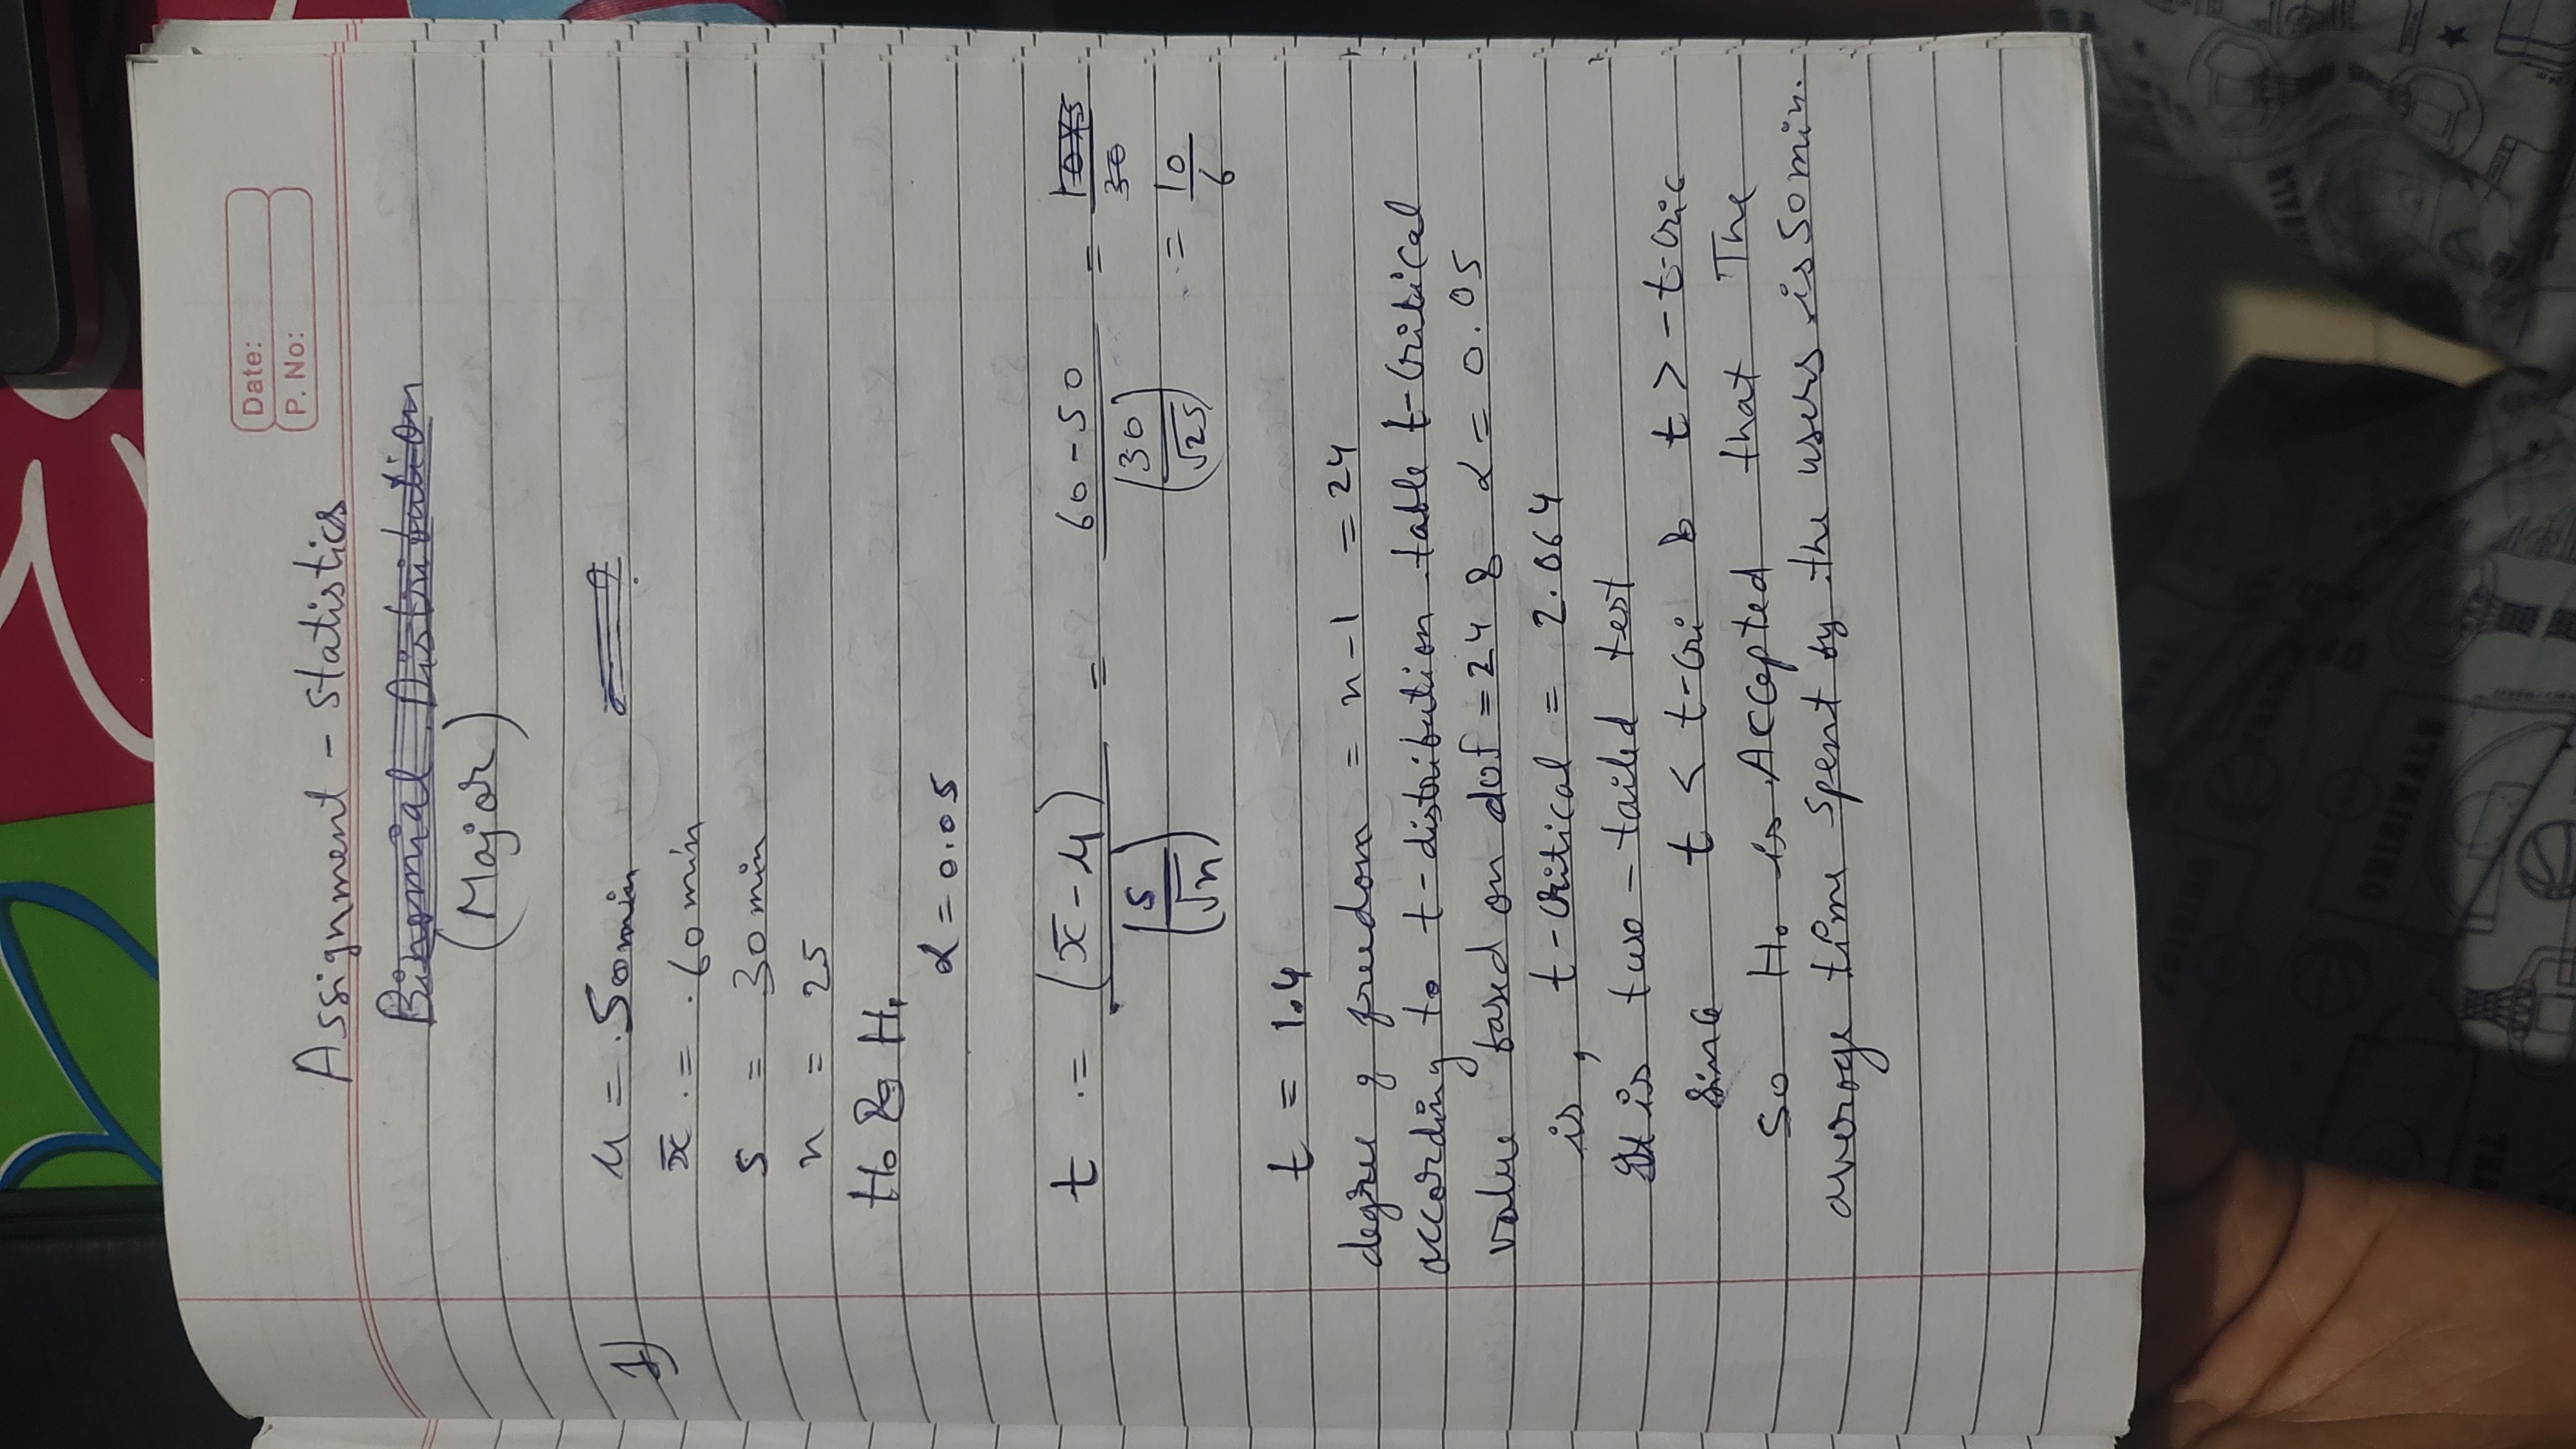 Date:
P. No:
Assignment - Statistics
Binomial Distribution
(Major)
1)
μ = 50 min
x̄ = 60 min
s = 30 min
n = 25
H₀ & H₁
α = 0.05
t = (x̄ - μ) / (s/√n) = 60 - 50 / (30/√25) = 10x5/30
= 10/6
t = 1.4
degree of freedom = n - 1 = 24
according to t-distribution table t-critical
value based on dof = 24 & α = 0.05
is, t-critical = 2.064
It is two-tailed test
since t < t-cri & t > -t-cric
So H₀ is Accepted that The
average time spent by the users is 50 min.
ORIGINALS